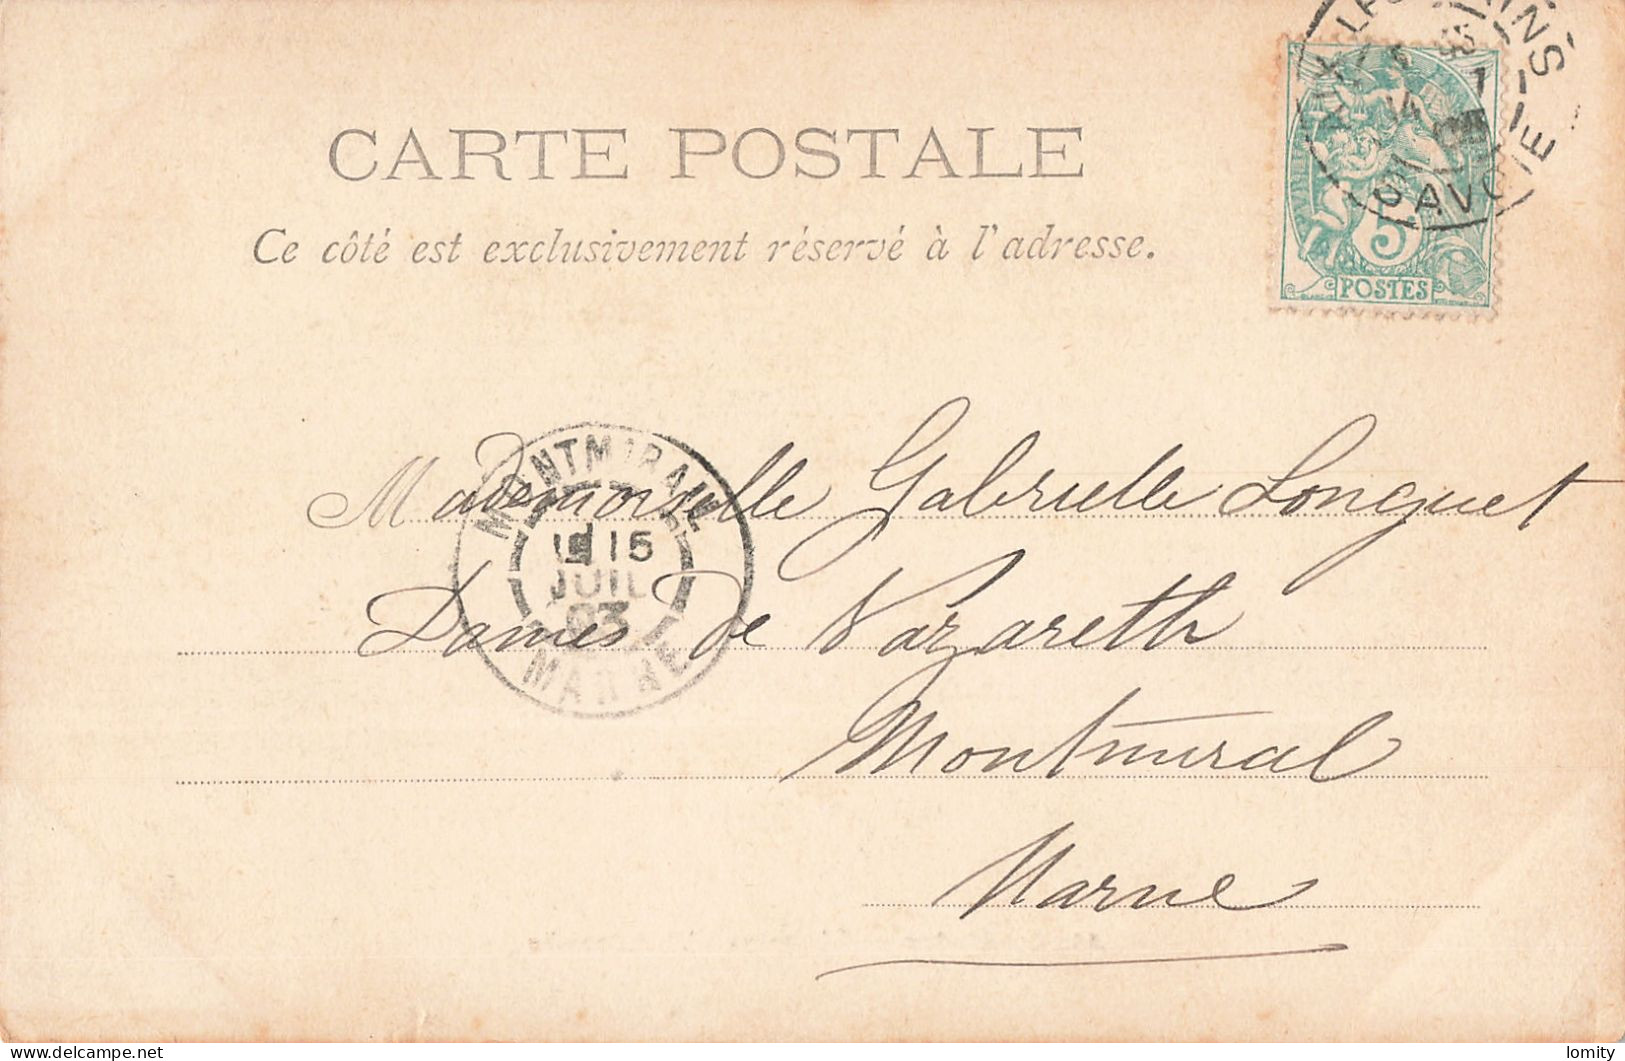 CARTE POSTALE
Ce côté est exclusivement réservé à l'adresse.
5
POSTES
SAVOIE
MONTMIRAIL
15
JUIL
03
MARNE
Mademoiselle Gabrielle Longuet
Dames de Nazareth
Montmiral
Marne
lomity
delcampe.net